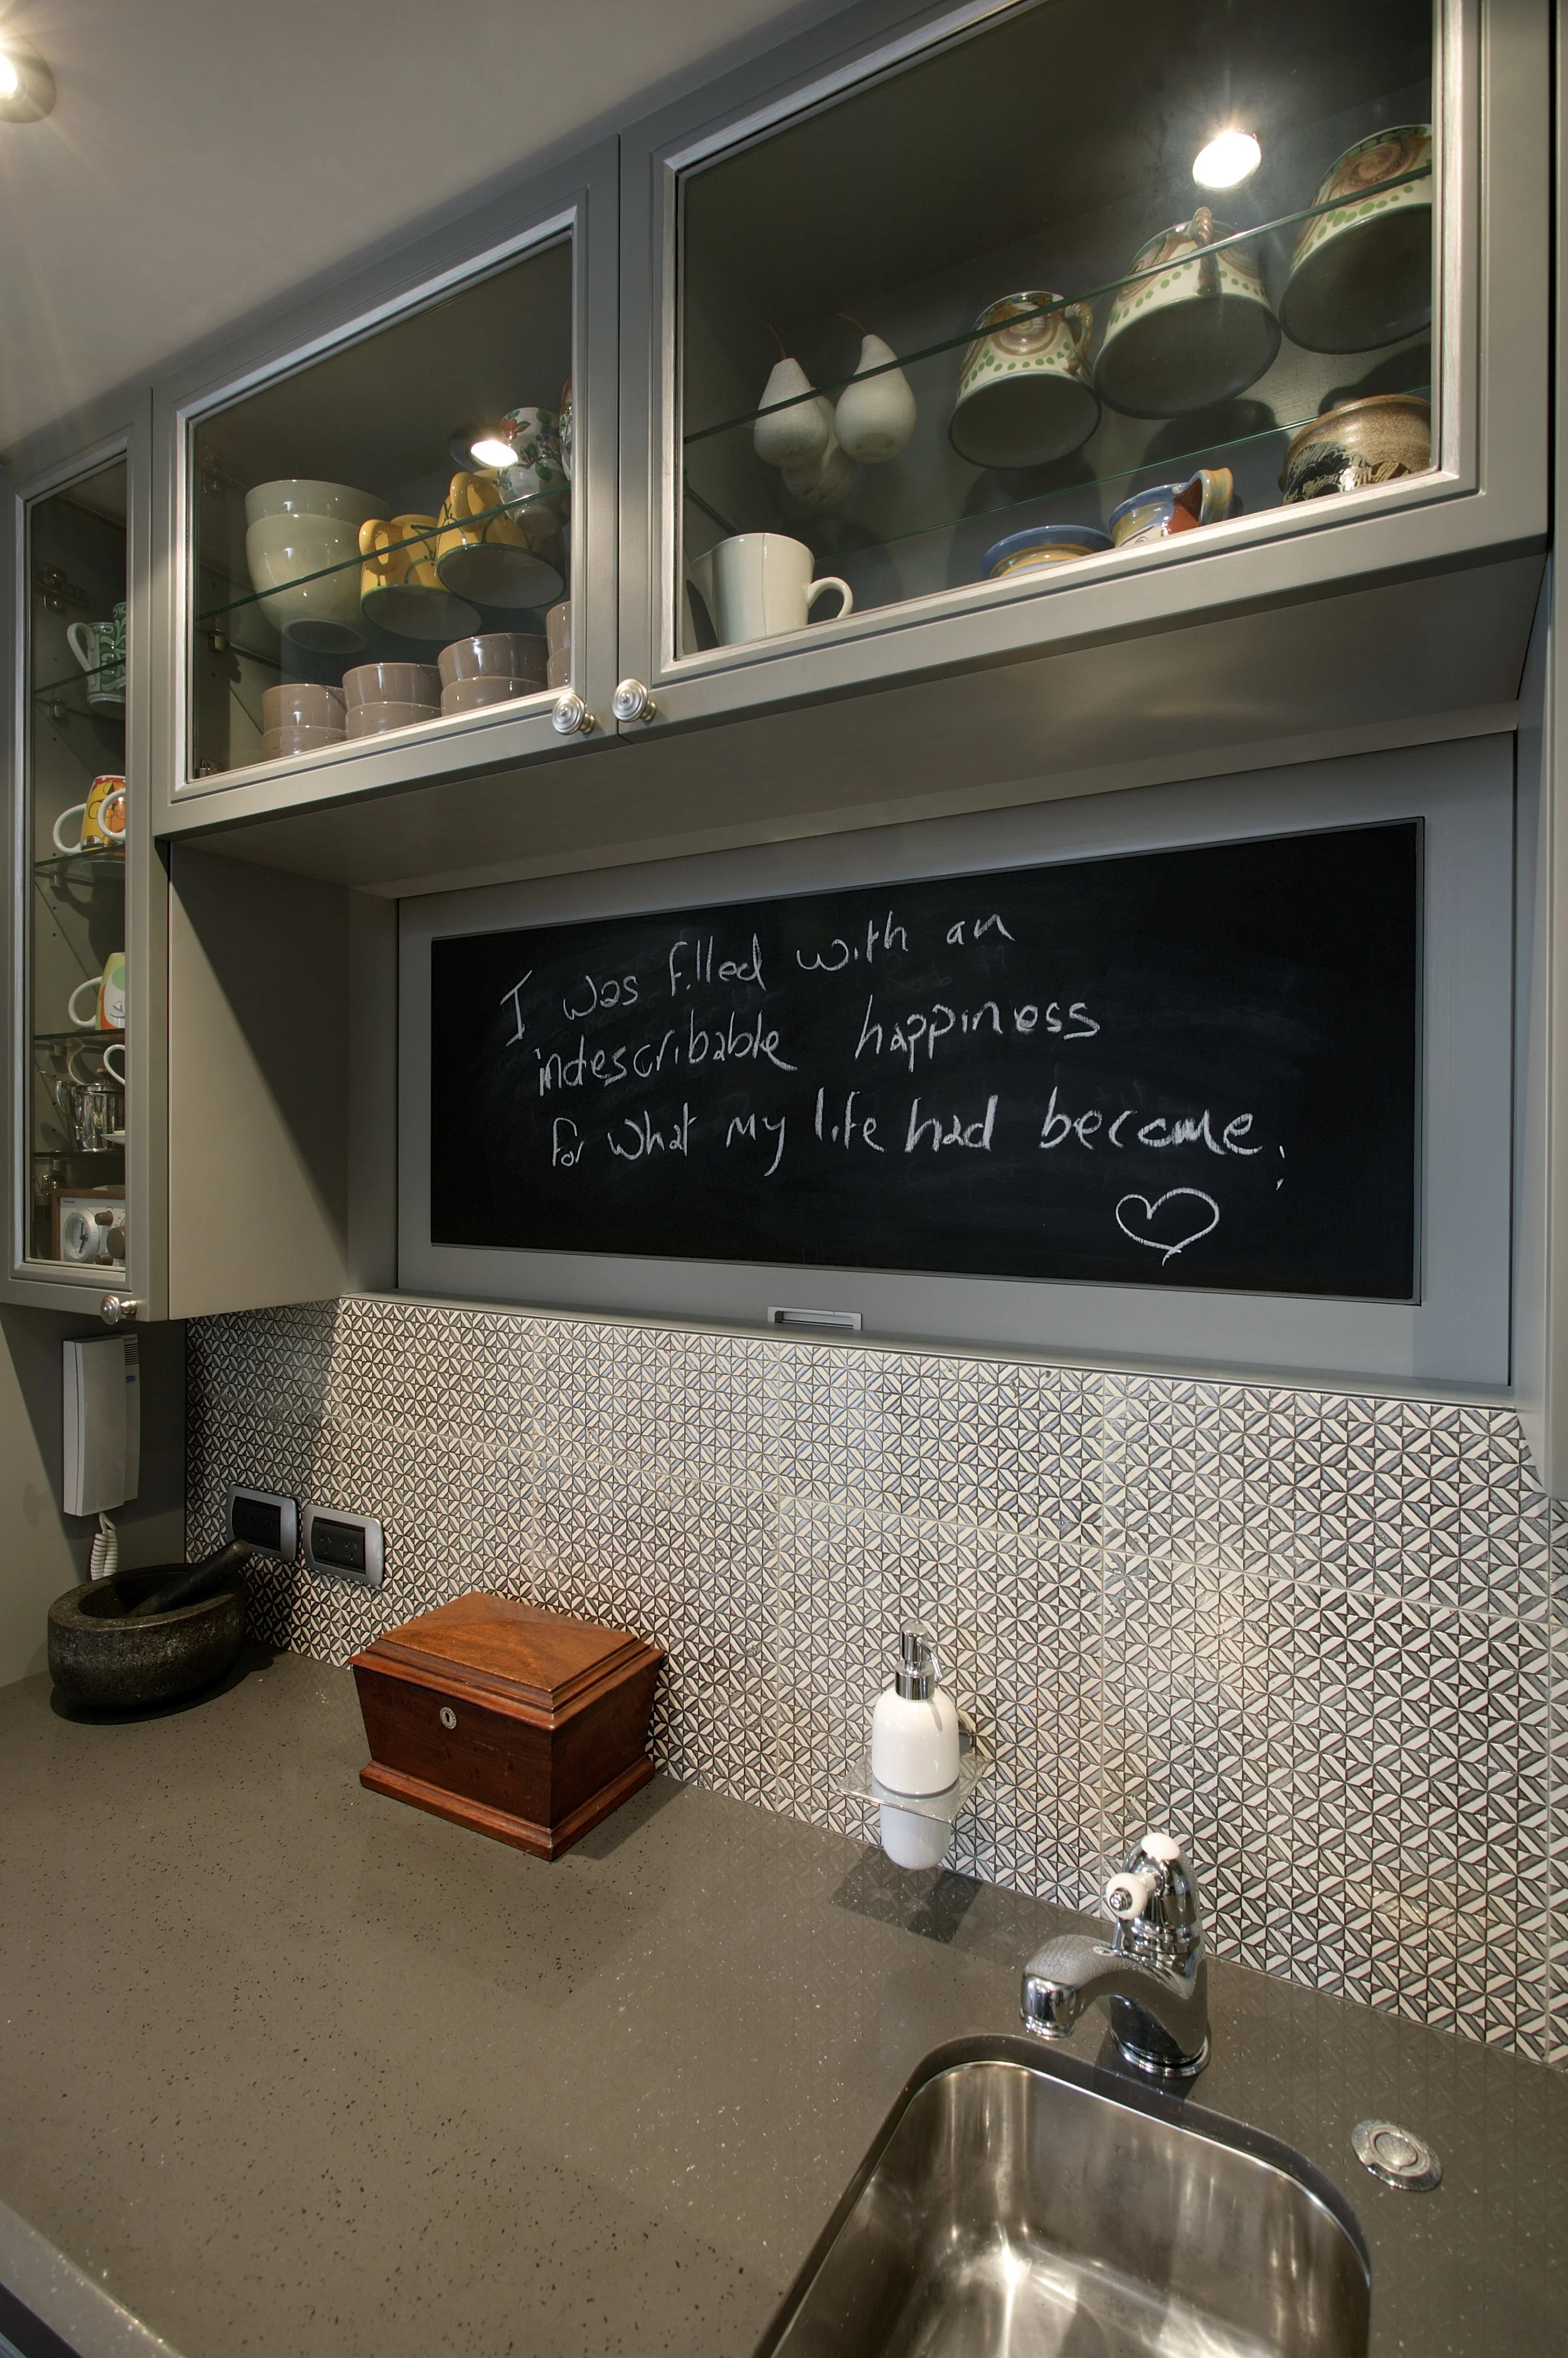 I was filled with an
indescribable happiness
for what my life had become.